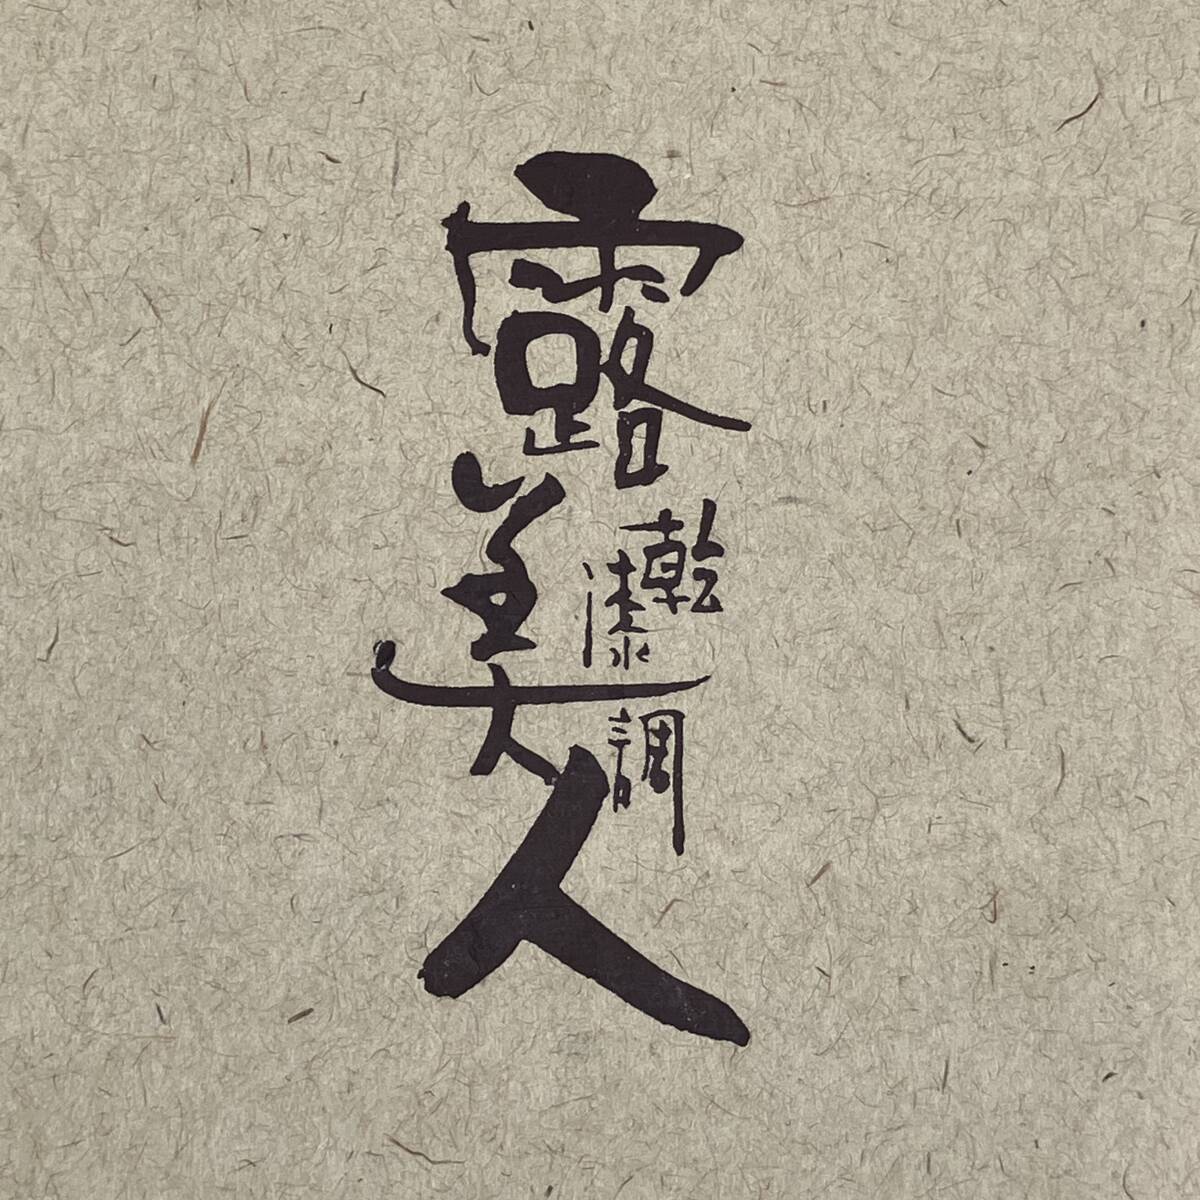 露美人
乾漆調